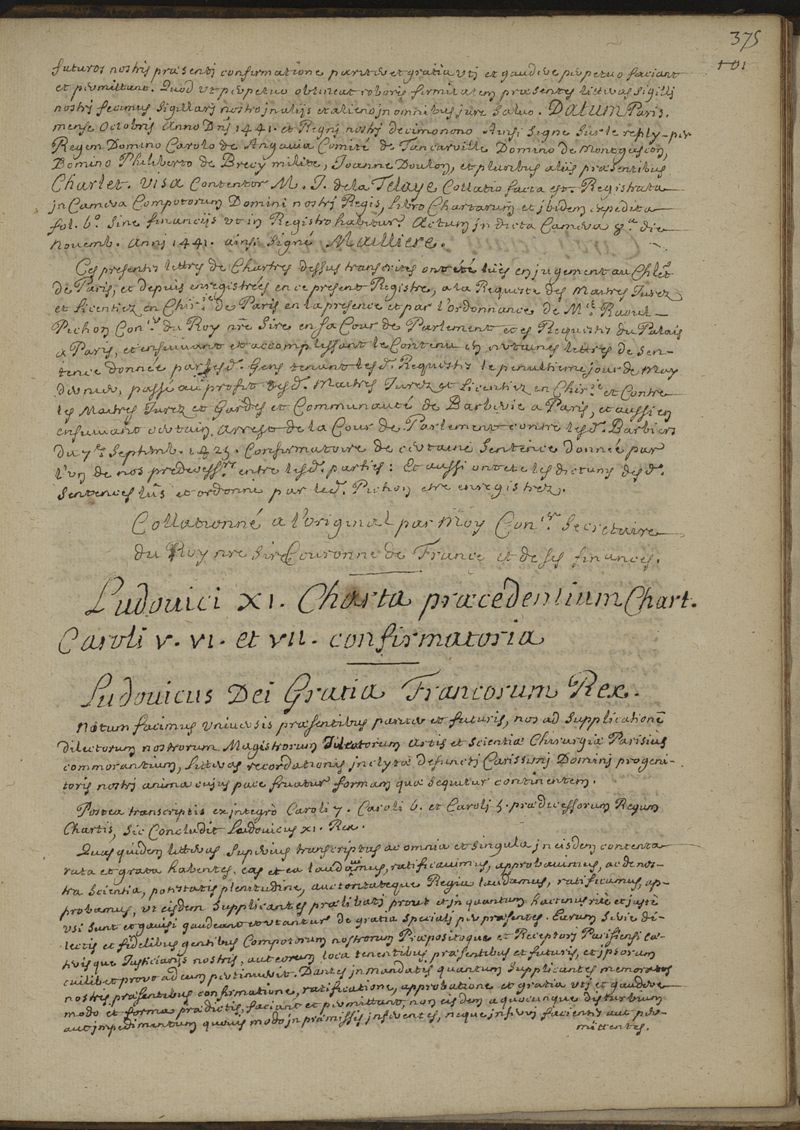 375
101
futuros nostris præsenti confirmatione pariter et gratia uti et gaudere perpetuo faciant
et permittant. Quod ut perpetuo obtineat roboris firmitatem præsentes litteras Sigilli
nostri fecimus Sigillari nostro in alijs et alieno in omnibus jure Salvo. Datum Paris.
mense Octobris Anno Dni 1441. et Regni nostri decimonono Ainsi Signé Sur le reply per
Regem Domino Carolo de Angauia Comite de Tancarville Domino de Montgascon,
Domino Philiberto de Brecy milite, Joanne Doulon, et pluribus aliis præsentibus
Charlet. Visa Contentor M. J. de la Telaye Collatio facta est. Registrata
in Camera Computorum Domini nostri Regis, Libro Chartarum et ibidem expedita
fol. bo. Sine financiis ut in Registro habitur. Actum in dicta Camera 8a. die
Novemb. Anni 1441. ainsi Signé Malliere.
Ces presentes lettres de Chartres dessus transcrites ont été lües en jugement au Chlet
de Paris, et depuis enregistrées en ce present Registre, a la Requeste des Maitres Jurez
et Licentiez en Chir.ie de Paris en la presence et par l'ordonnance de Me. Raoul
Pichon Con.er du Roy nre Sire en sa Cour de Parlement et es Requestes du Palais
a Paris, et ensuivant et accomplissant le Contenu en certaines lettres de Sen-
tence donnée par lesd. Gens tenant lesd. Requestes le penultieme jour de May
dernier, passé au profit desd. Maitres Jurez et Licentiez en Chir.ie et Contre
les Maitres Jurez et Gardes et Communauté de Barberie a Paris, et aussi en
ensuivant certain Arrest de la Cour de Parlement contre lesd. Barbiers
du 7e. Septemb. 1425. Confirmatoire de certaine Sentence donnée par
l'un de nos predecess.rs entre lesd. parties: Et aussi ont ete les dictums desd.
Sentences lûs et ordonné par led. Pichon etre enregistrez.
Collationné a l'original par Moy Con.er Secretaire
du Roy nre Sire Couronne de France et de ses finances.
Ludovici XI. Charta præcedentium Chart.
Caroli V. VI. et VII. confirmatoria
Ludovicus Dei Gratia Francorum Rex.
Notum facimus Universis præsentibus pariter et futuris, nos ad Supplicationē
dilectorum nostrorum Magistrorum Artis et Scientiæ Chirurgiæ Parisius
commorantium, Litteras recordationis inclytæ defuncti Carissimi Domini progeni-
toris nostri anima cujus pace fruatur formam quæ sequitur continentem.
Postea transcriptis ex integro Caroli 7. Caroli 6. et Caroli 5. prædecessorum Regum
Chartis, Sic Concludit Ludovicus XI. Rex.
Quas quidem litteras Superius transcriptas ac omnia et singula in eisdem contenta
rata et grata habentes, eas et ea laudavimus, ratificavimus, approbavimus, ac de nos-
tra Scientia, potestatis plenitudine, auctoritateque Regia laudamus, ratificamus, ap-
probamus, ut eisdem Supplicantes prælibati prout et in quantum hactenus rite et juste
usi sunt et gavisi gaudeant et utantur de gratia Speciali per præsentes. Earum Serie di-
lectis et fidelibus gentibus Compotorum nostrorum Præpositoque et Receptori Parisiensi Cæ-
terisque Justiciariis nostris, aut eorum loca tenentibus, præsentibus et futuris, et ipsorum
cuilibet prout ad eum pertinuerit. Dantes in mandatis quantum Supplicantes memoratos
nostris præsentibus confirmatione, ratificatione, approbatione et gratia uti et gaudere
modo et forma prædictis, faciant et permittant, non eisdem a quocunque disturbium
aut impedimentum quovis modo in præmissis inferentes, neque inferri facientes aut per-
mittentes.